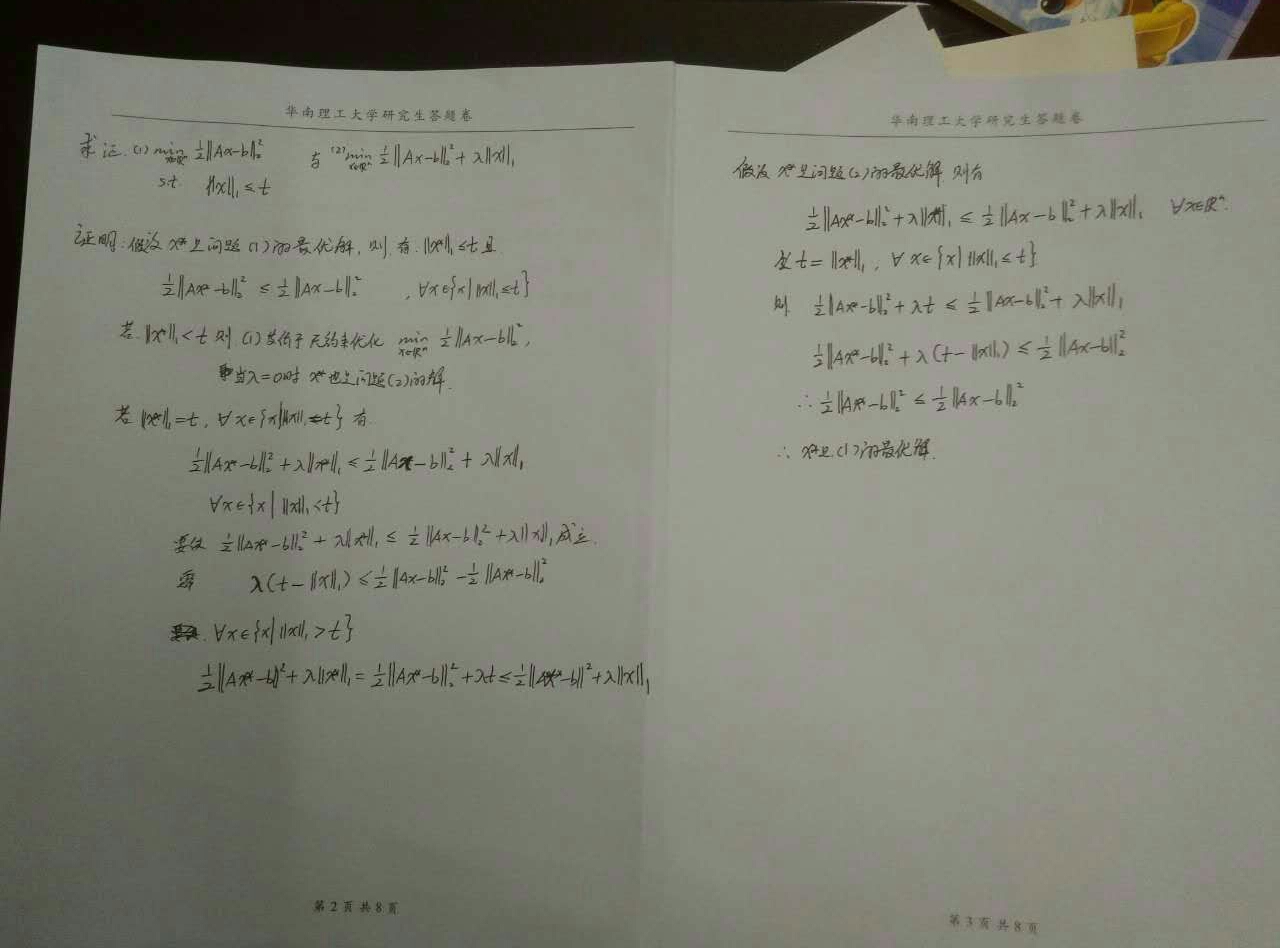 华南理工大学研究生答题卷
求证. (1) min x∈ℝⁿ ½||Ax-b||₂² 与 (2) min x∈ℝⁿ ½||Ax-b||₂² + λ||x||₁
s.t. ||x||₁ ≤ t
证明: 假设 x* 是问题 (1) 的最优解, 则有 ||x*||₁ ≤ t 且
½||Ax*-b||₂² ≤ ½||Ax-b||₂² , ∀x∈{x| ||x||₁ ≤ t}
若 ||x*||₁ < t 则 (1) 等价于无约束优化 min x∈ℝⁿ ½||Ax-b||₂²,
当 λ=0 时 x* 也是问题 (2) 的解.
若 ||x*||₁ = t, ∀x∈{x| ||x||₁ = t} 有
½||Ax*-b||₂² + λ||x*||₁ ≤ ½||Ax-b||₂² + λ||x||₁
∀x∈{x| ||x||₁ < t}
要使 ½||Ax*-b||₂² + λ||x*||₁ ≤ ½||Ax-b||₂² + λ||x||₁ 成立.
需 λ(t-||x||₁) ≤ ½||Ax-b||₂² - ½||Ax*-b||₂²
∀x∈{x| ||x||₁ > t}
½||Ax*-b||² + λ||x*||₁ = ½||Ax*-b||₂² + λt ≤ ½||Ax*-b||² + λ||x||₁
第 2 页 共 8 页
华南理工大学研究生答题卷
假设 x* 是问题 (2) 的最优解 则有
½||Ax*-b||₂² + λ||x*||₁ ≤ ½||Ax-b||₂² + λ||x||₁ ∀x∈ℝⁿ.
t = ||x*||₁, ∀x∈{x| ||x||₁ ≤ t}
则 ½||Ax*-b||₂² + λt ≤ ½||Ax-b||₂² + λ||x||₁
½||Ax*-b||₂² + λ(t-||x||₁) ≤ ½||Ax-b||₂²
∴ ½||Ax*-b||₂² ≤ ½||Ax-b||₂²
∴ x* 是 (1) 的最优解.
第 3 页 共 8 页